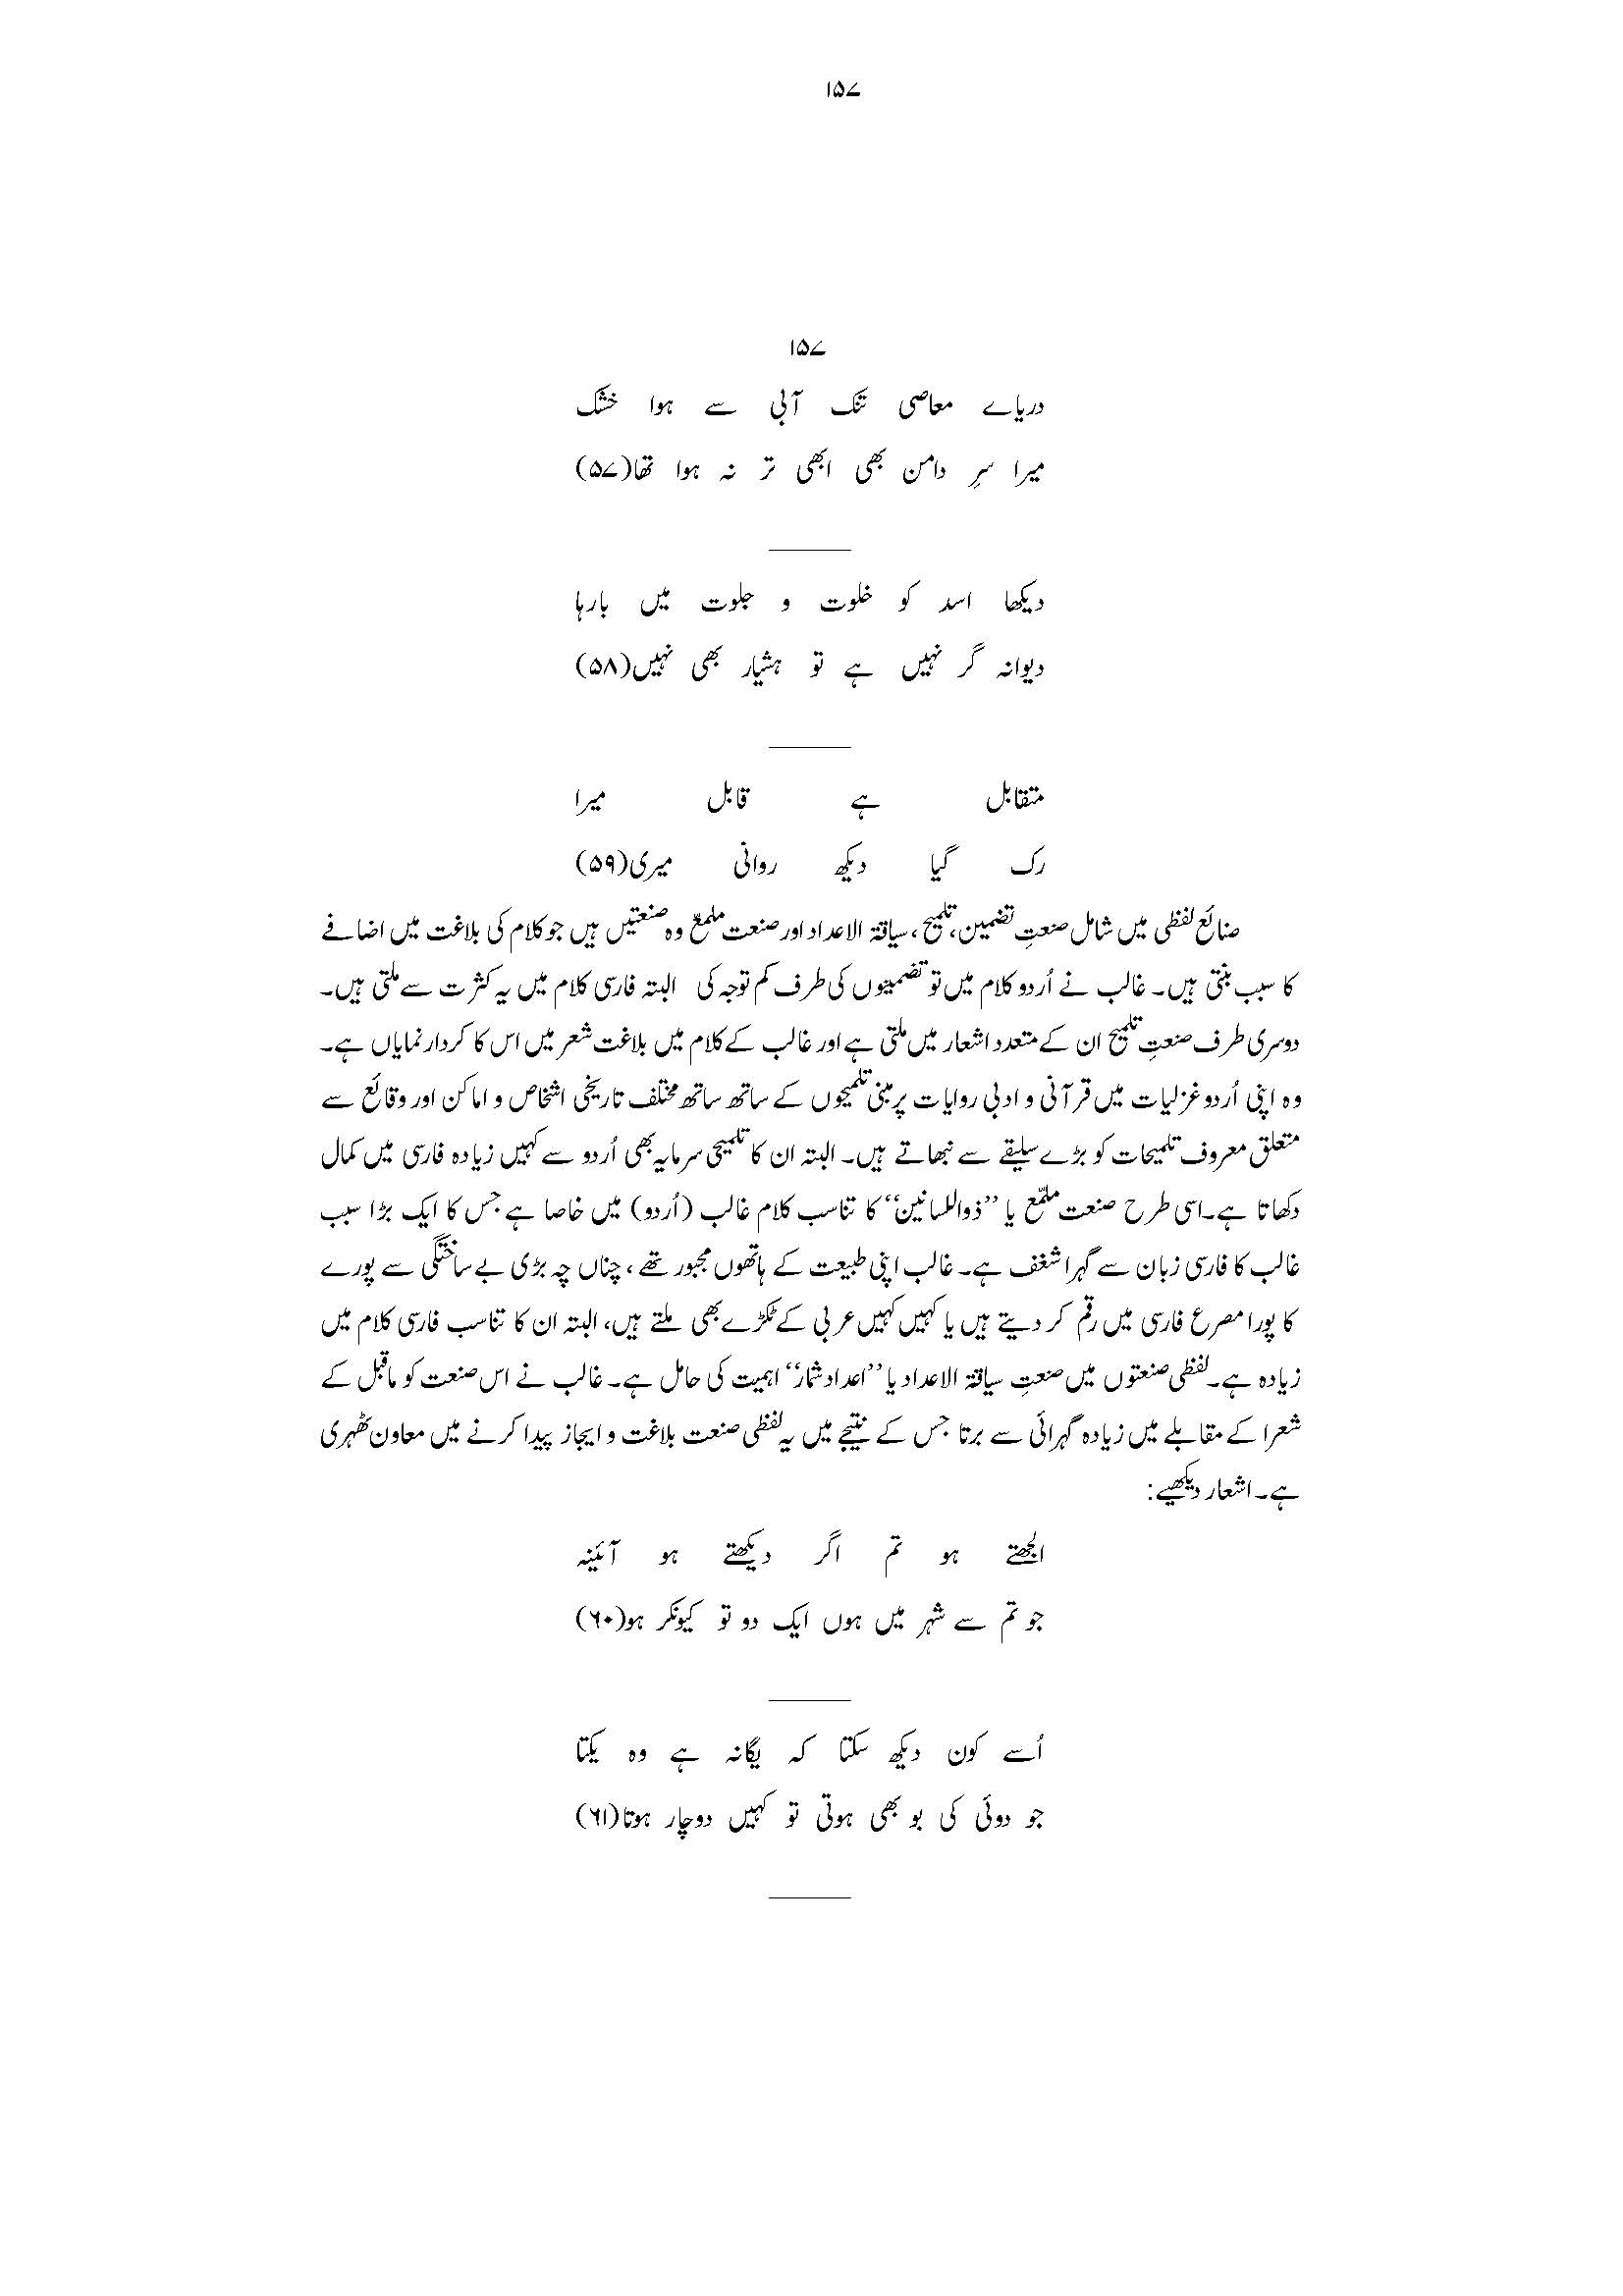 ۱۵۷
۱۵۷
دریاے معاصی تنک آبی سے ہوا خشک
میرا سرِ دامن بھی ابھی تر نہ ہوا تھا(۵۷)
دیکھا اسد کو خلوت و جلوت میں بارہا
دیوانہ گر نہیں ہے تو ہشیار بھی نہیں(۵۸)
متقابل ہے قابل میرا
رک گیا دیکھ روانی میری(۵۹)
صنائع لفظی میں شامل صنعتِ تضمین، تلمیح، سیاقۃ الاعداد اور صنعت ملمعّ وہ صنعتیں ہیں جو کلام کی بلاغت میں اضافے
کا سبب بنتی ہیں۔ غالب نے اُردو کلام میں تو تضمینوں کی طرف کم توجہ کی البتہ فارسی کلام میں یہ کثرت سے ملتی ہیں۔
دوسری طرف صنعتِ تلمیح ان کے متعدد اشعار میں ملتی ہے اور غالب کے کلام میں بلاغت شعر میں اس کا کردار نمایاں ہے۔
وہ اپنی اُردو غزلیات میں قرآنی و ادبی روایات پر مبنی تلمیحوں کے ساتھ ساتھ مختلف تاریخی اشخاص و اماکن اور وقائع سے
متعلق معروف تلمیحات کو بڑے سلیقے سے نبھاتے ہیں۔ البتہ ان کا تلمیحی سرمایہ بھی اُردو سے کہیں زیادہ فارسی میں کمال
دکھاتا ہے۔اسی طرح صنعت ملمّع یا ’’ذواللسانین‘‘ کا تناسب کلام غالب (اُردو) میں خاصا ہے جس کا ایک بڑا سبب
غالب کا فارسی زبان سے گہرا شغف ہے۔ غالب اپنی طبیعت کے ہاتھوں مجبور تھے، چناں چہ بڑی بے ساختگی سے پورے
کا پورا مصرع فارسی میں رقم کر دیتے ہیں یا کہیں کہیں عربی کے ٹکڑے بھی ملتے ہیں، البتہ ان کا تناسب فارسی کلام میں
زیادہ ہے۔لفظی صنعتوں میں صنعتِ سیاقۃ الاعداد یا ’’اعداد شمار‘‘ اہمیت کی حامل ہے۔ غالب نے اس صنعت کو ماقبل کے
شعرا کے مقابلے میں زیادہ گہرائی سے برتا جس کے نتیجے میں یہ لفظی صنعت بلاغت و ایجاز پیدا کرنے میں معاون ٹھہری
ہے۔ اشعار دیکھیے:
الجھتے ہو تم اگر دیکھتے ہو آئینہ
جو تم سے شہر میں ہوں ایک دو تو کیونکر ہو(۶۰)
اُسے کون دیکھ سکتا کہ یگانہ ہے وہ یکتا
جو دوئی کی بو بھی ہوتی تو کہیں دوچار ہوتا(۶۱)